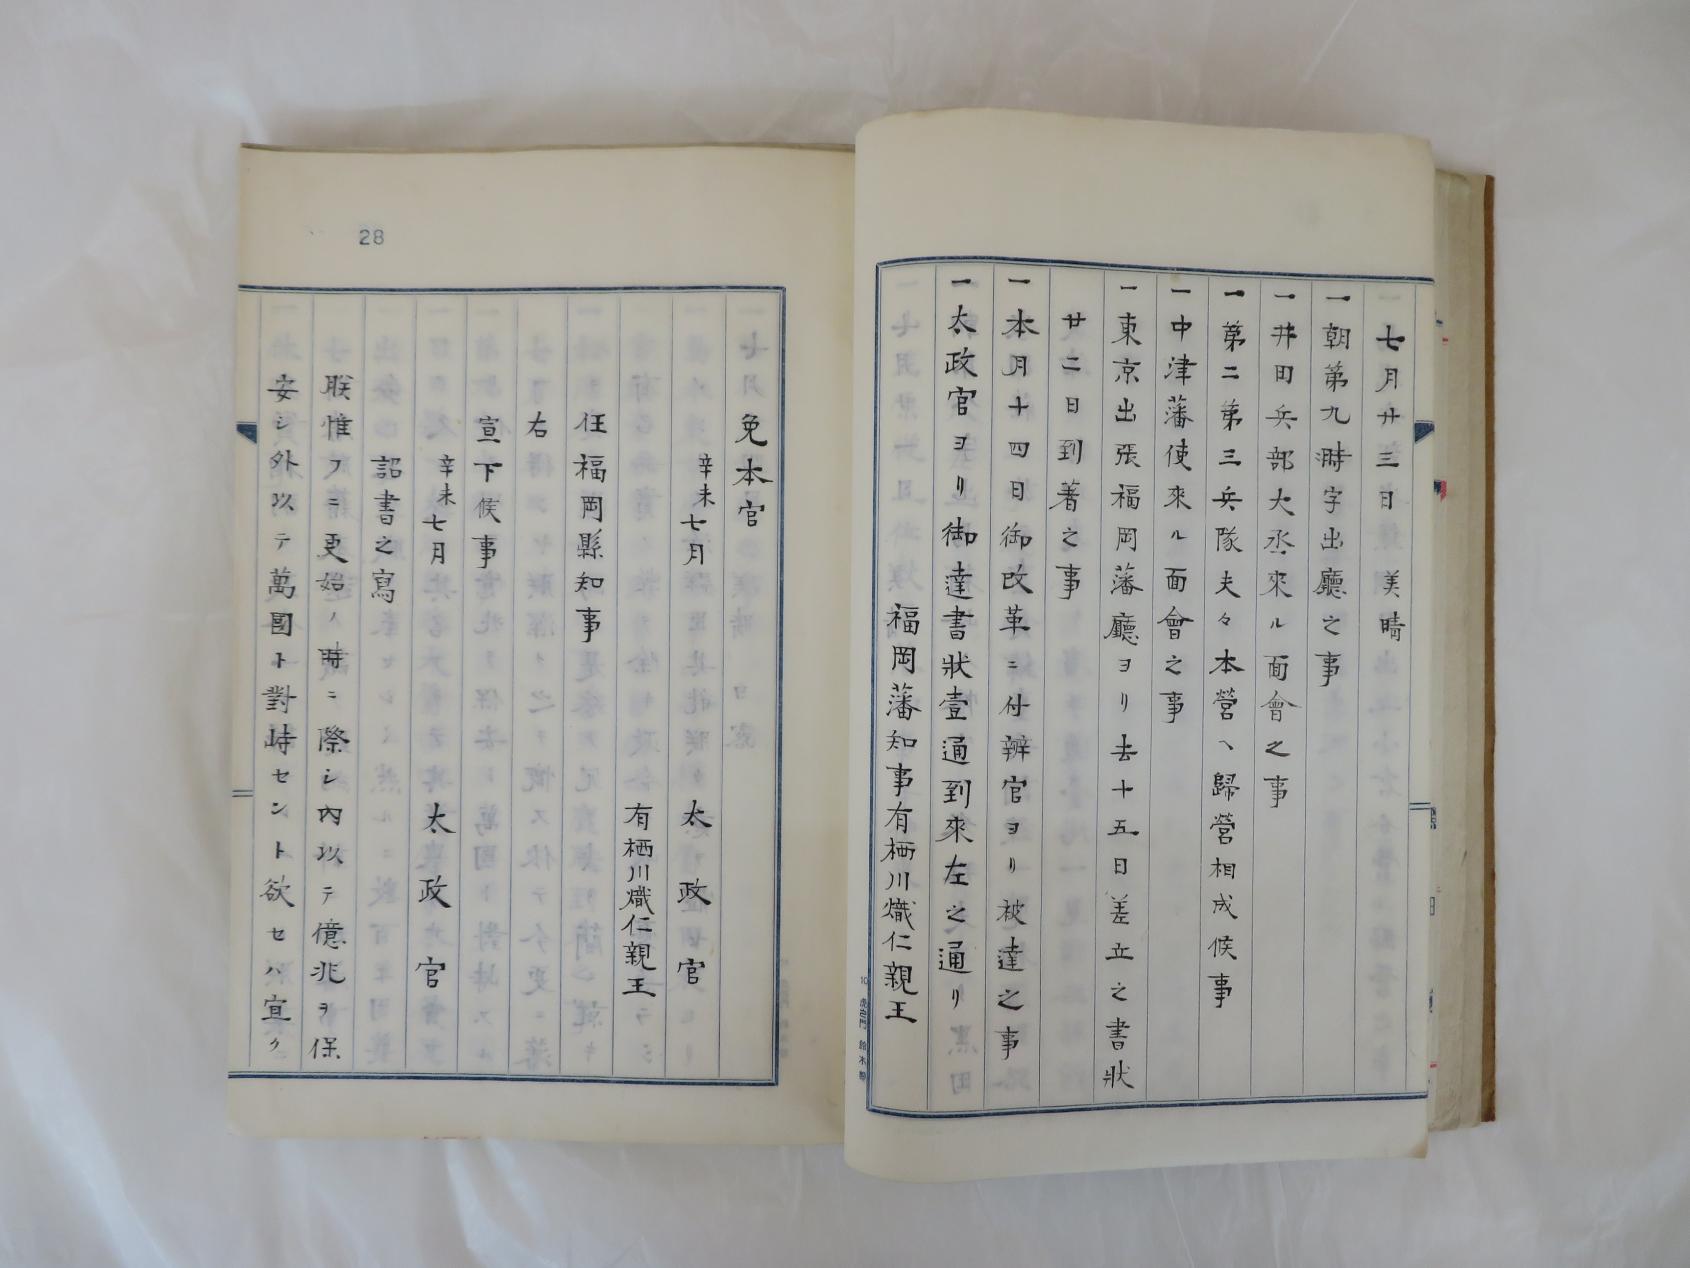 七月廿三日 美晴
一朝第九時字出廳之事
一井田兵部大丞來ル面會之事
一第二第三兵隊夫々本營ヘ歸營相成候事
一中津藩使來ル面會之事
一東京出張福岡藩廳ヨリ去十五日差立之書狀
廿二日到著之事
一本月十四日御改革ニ付辨官ヨリ被達之事
一太政官ヨリ御達書狀壹通到來左之通リ
福岡藩知事有栖川熾仁親王
10 虎
門 鈴木
28
免本官
辛未七月 太政官
有栖川熾仁親王
任福岡縣知事
右
宣下候事
辛未七月 太政官
詔書之寫
朕惟フニ更始ノ時ニ際シ內以テ億兆ヲ保
安シ外以テ萬國ト對峙セント欲セハ宜ク